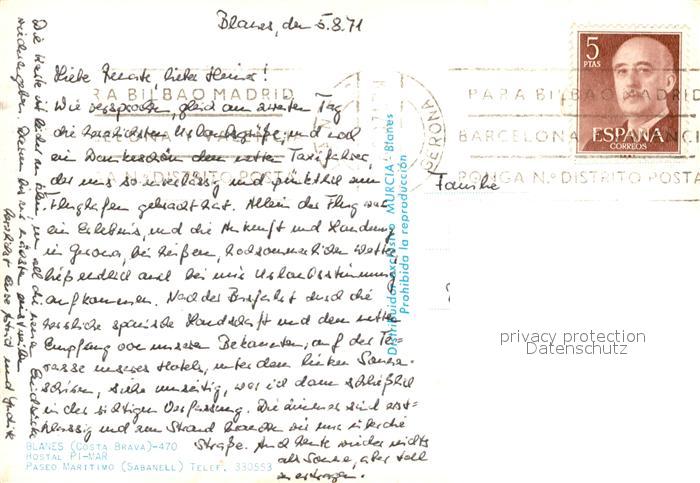 Blanes, den 5.8.71
Liebe Renate, lieber Heinz!
Wie versprochen, gleich am zweiten Tag
die herzlichsten Urlaubsgrüße, und noch
ein Dankeschön dem netten Taxifahrer,
der uns so zuverlässig und pünktlich zum
Flughafen gebracht hat. Allein der Flug war
ein Erlebnis, und die Ankunft und Landung
in Gerona, bei heißem, hochsommerlichen Wetter
ließ endlich auch bei mir Urlaubsstimmung
aufkommen. Nach der Busfahrt durch die
herrliche spanische Landschaft und dem netten
Empfang von unseren Bekannten, auf der Ter-
rasse unseres Hotels, unter den
siehe umseitig, war ich dann schließlich
in der richtigen Verfassung. Die Zimmer sind erst-
klassig und zum Strand brauchen wir nur über die
Straße. Auch heute wieder nichts
als Sonne, aber toll
zu ertragen.
Die Karte ist leider zu klein, um all die neuen Eindrücke
wiederzugeben. Darum bei uns
herzlichst eure Astrid und
5
PTAS
ESPAÑA
CORREOS
PARA BILBAO MADRID
BARCELONA
PONGA N.º DISTRITO POSTAL
GERONA
Familie
Distribuidor exclusivo MURCIA - Blanes
Prohibida la reproducción
BLANES (COSTA BRAVA)-470
HOSTAL PI-MAR
PASEO MARITIMO (SABANELL) TELEF. 330553
privacy protection
Datenschutz